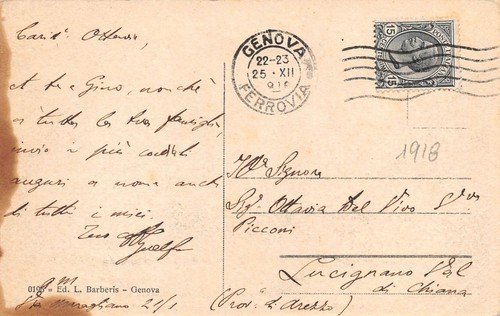 Cariss. Ottavia,
A te e Gino, nonchè
a tutta la tua famiglia
invio i più cordiali
auguri a nome anche
di tutti i miei.
Tuo
GENOVA
22-23
25 · XII
FERROVIA
15 15
1918
Sig.ra Ottavia Del Vivo
Picconi
Lucignano Val
di Chiana
(Prov. di Arezzo)
0105 - Ed. L. Barberis - Genova
21/1